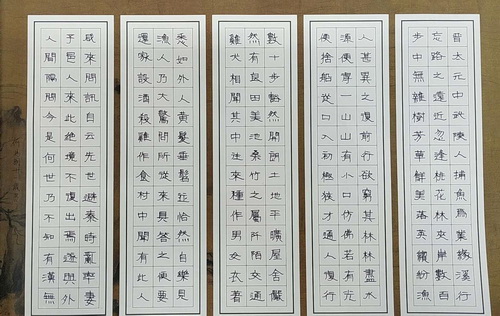 晉太元中武陵人捕魚為業緣溪行
忘路之遠近忽逢桃花林夾岸數百
步中無雜樹芳華鮮美落英繽紛漁
人甚異之復前行欲窮其林林盡水
源便得一山山有小口仿佛若有光
便捨船從口入初極狹才通人復行
數十步豁然開朗土地平曠屋舍儼
然有良田美池桑竹之屬阡陌交通
雞犬相聞其中往來種作男女衣著
悉如外人黃髮垂髫並怡然自樂見
漁人乃大驚問所從來具答之便要
還家設酒殺雞作食村中聞有此人
咸來問訊自云先世避秦時亂率妻
子邑人來此絕境不復出焉遂與外
人間隔問今是何世乃不知有漢無